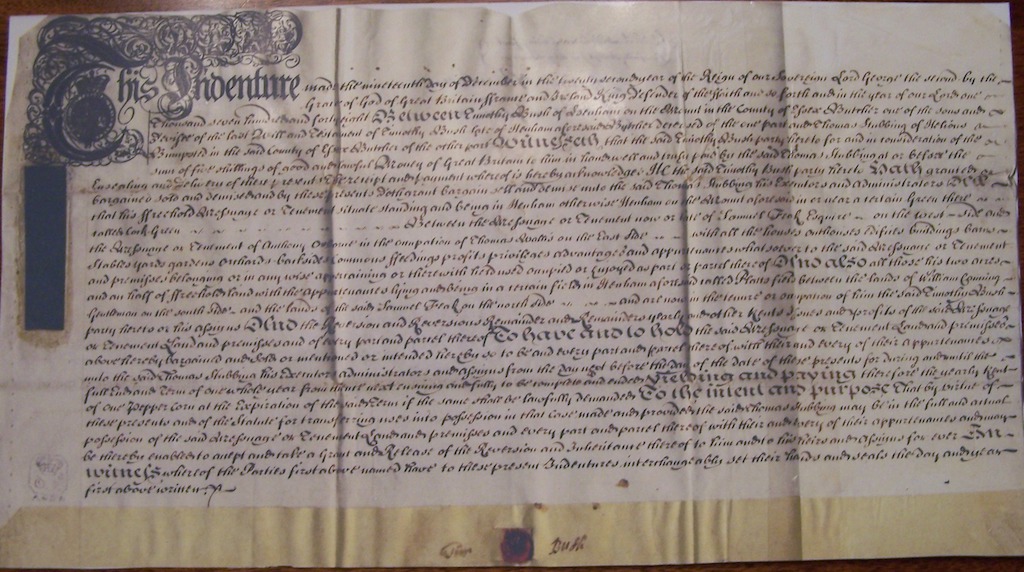 This Indenture made the nineteenth day of December in the twenty second year of the Reign of our Sovereign Lord George the second by the
Grace of God of Great Britain ffrance and Ireland King Defender of the ffaith and so forth and in the year of our Lord one
Thousand seven hundred and forty eight Between Timothy Bush of Henham on the Mount in the County of Essex Butcher one of the sons and
Devisee of the last Will and Testament of Timothy Bush late of Henham aforesaid Butcher deceased of the one part and Thomas Stubbing of Helions
Bumpsted in the said County of Essex Butcher of the other part Witnesseth that the said Timothy Bush party hereto for and in consideration of the
sum of five shillings of good and lawful Money of Great Britain to him in hand well and truly paid by the said Thomas Stubbing at or before the
Ensealing and Delivery of these presents the receipt and payment whereof is hereby acknowledged He the said Timothy Bush party hereto Hath granted
bargained sold and demised and by these presents Doth grant bargain sell and demise unto the said Thomas Stubbing his Executors and administrators All
that his ffreehold Messuage or Tenement situate standing and being in Henham otherwise Henham on the Mount aforesaid in or near a certain Green there
called Green Between the Messuage or Tenement now or late of Samuel Esquire on the West Side and
the Messuage or Tenement of Anthony in the occupation of Thomas Wallis on the East Side with all the houses outhouses edifices buildings barns
Stables yards gardens Orchards backsides Commons ffeedings profits priviledges advantages and appurtenances whatsoever to the said Messuage or Tenement
and premises belonging or in any wise appertaining or therewith held used occupied or enjoyed as part or parcel thereof And also all those his two acres
and an half of ffreehold land with the appurtenances lying and being in a certain field in Henham aforesaid called field between the lands of William
Gentleman on the south side and the lands of the said Samuel on the north side and are now in the tenure or occupation of him the said Timothy Bush
party hereto or his assigns And the Reversion and Reversions Remainder and Remainders yearly and other Rents Issues and profits of the said Messuage
or Tenement Land and premises and of every part and parcel thereof To have and to hold the said Messuage or Tenement Land and premises
above hereby bargained and Sold or mentioned or intended hereby so to be and every part and parcel thereof with their and every of their appurtenances
unto the said Thomas Stubbing his Executors administrators and assigns from the day next before the day of the date of these presents for during and until the
full End and Term of one whole year from thence next ensuing and fully to be complete and ended Yielding and paying therefore the yearly Rent
of one Pepper Corn at the Expiration of the said Term if the same shall be lawfully demanded To the intent and purpose That by virtue of
these presents and of the Statute for transferring uses into possession in that Case made and provided the said Thomas Stubbing may be in the full and actual
possession of the said Messuage or Tenement Land and premises and every part and parcel thereof with their and every of their appurtenances and may
be thereby enabled to accept and take a Grant and Release of the Reversion and Inheritance thereof to him and to his heirs and assigns for ever In
witness whereof the Parties first above named have to these present Indentures interchangeably set their hands and seals the day and year
first above written
Tim Bush